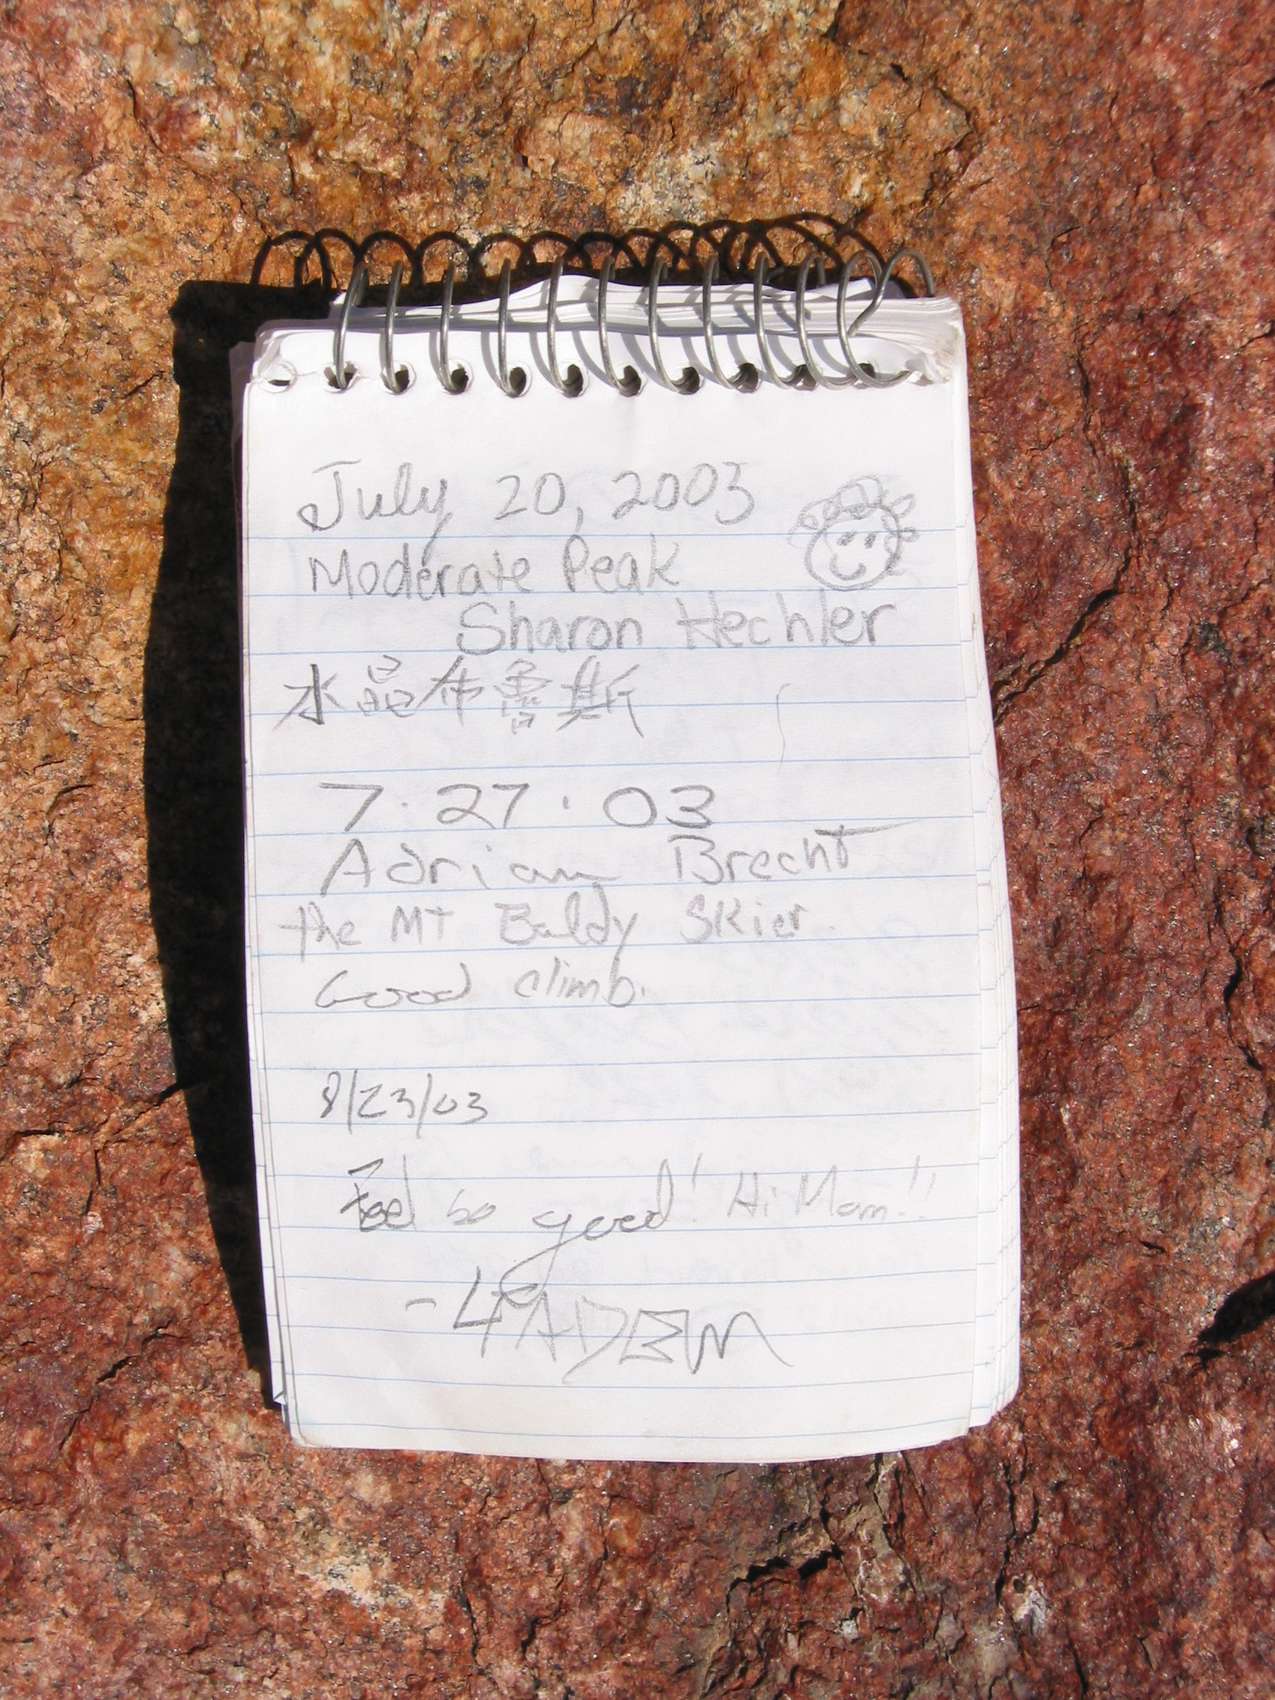 July 20, 2003
Moderate Peak
Sharon Hechler
水晶布魯斯
7·27·03
Adrian Brecht
the MT Baldy Skier.
Good climb.
8/23/03
Feel so good! Hi Mom!!